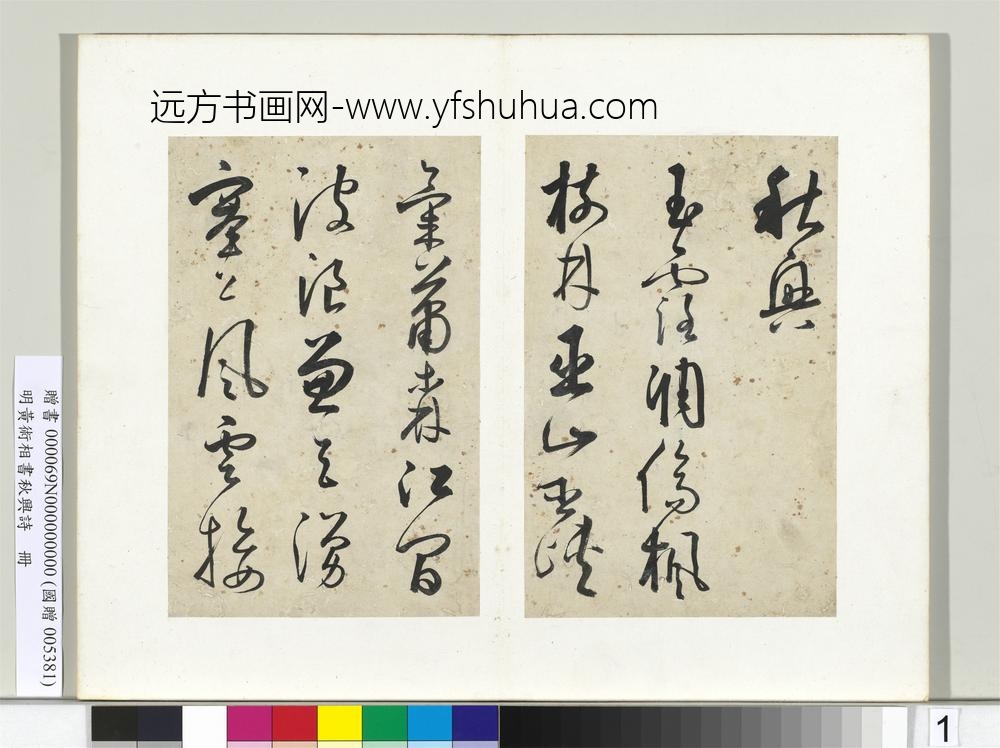 远方书画网-www.yfshuhua.com
秋興
玉露凋傷楓
樹林巫山巫峽
氣蕭森江間
波浪兼天湧
塞上風雲接
贈書 000069N000000000 (國贈 005381)
明黃術相書秋興詩 冊
1